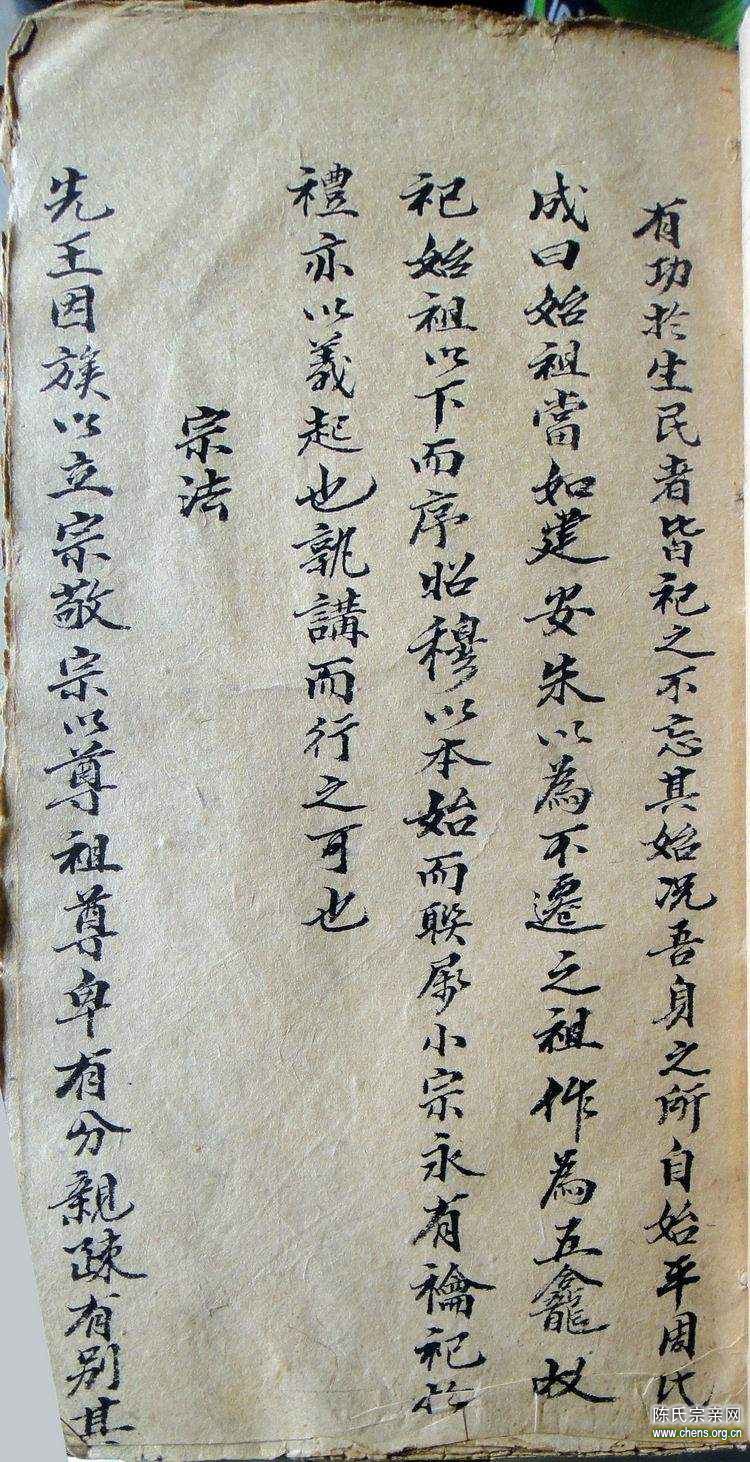 有功於生民者皆祀之不忘其始况吾身之所自始乎周氏
成曰始祖當如建安朱以為不遷之祖作為五龕奴
祀始祖以下而序昭穆以本始而聯属小宗永有禴祀於
禮亦以義起也孰講而行之可也
宗法
先王因族以立宗敬宗以尊祖尊卑有分親疎有别其
陈氏宗亲网
www.chens.org.cn